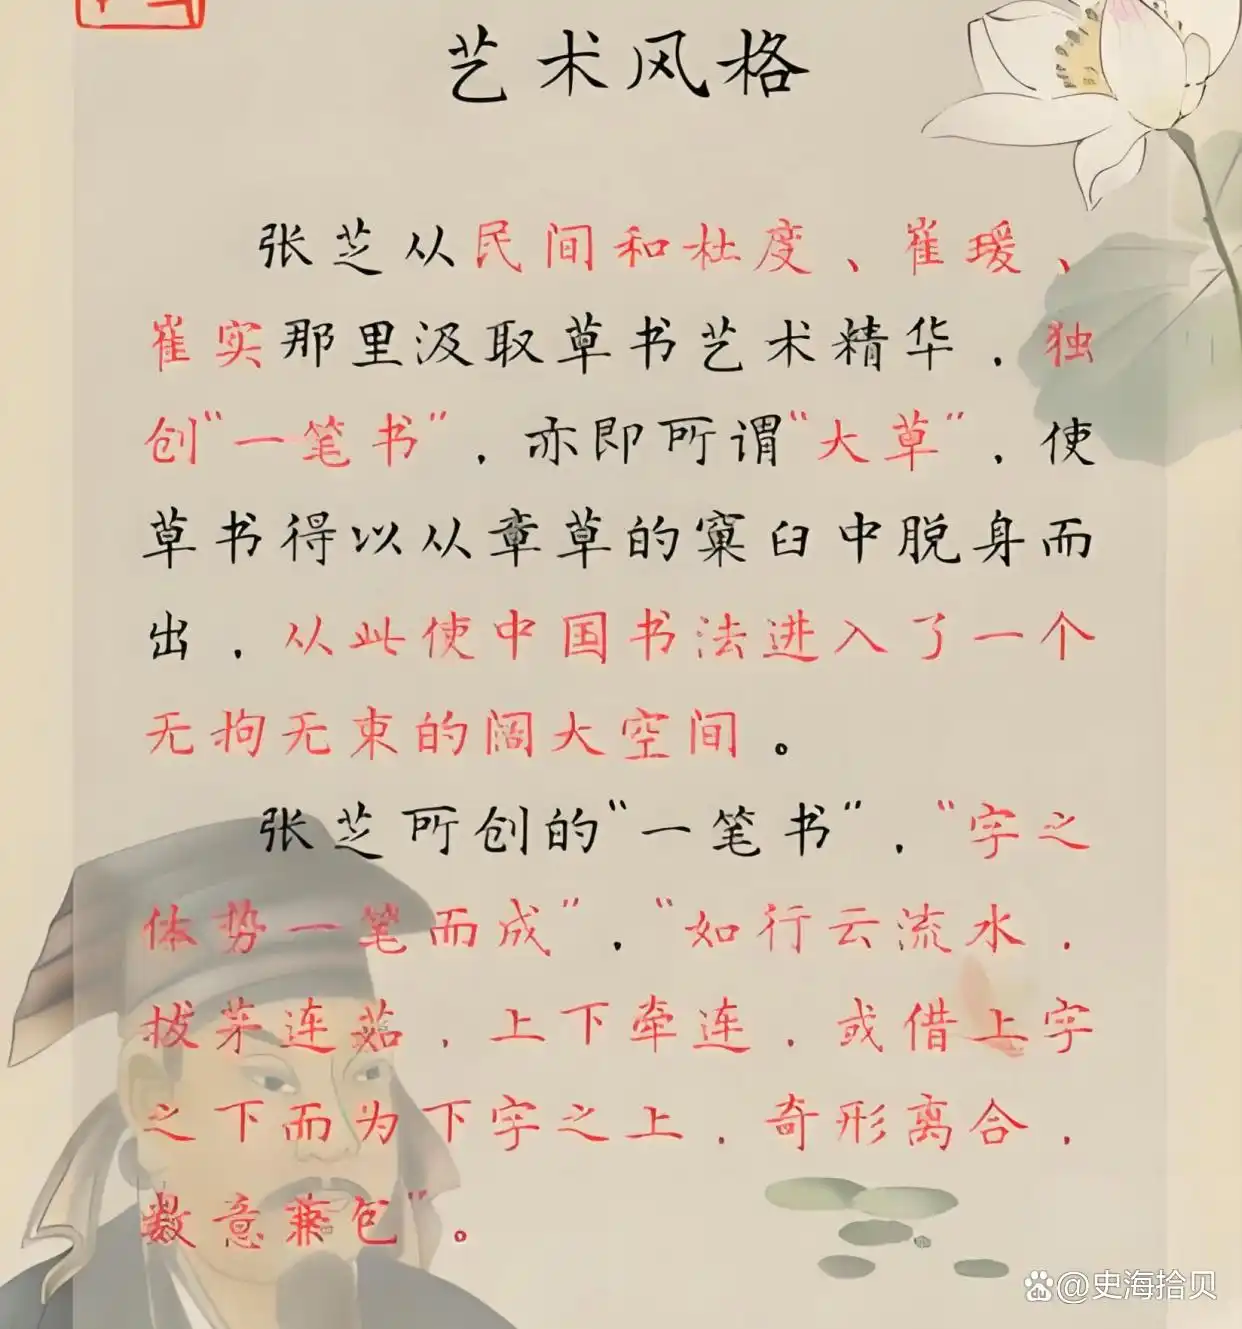 艺术风格
张芝从民间和杜度、崔瑗、
崔实那里汲取草书艺术精华，独
创“一笔书”，亦即所谓“大草”，使
草书得以从章草的窠臼中脱身而
出，从此使中国书法进入了一个
无拘无束的阔大空间。
张芝所创的“一笔书”，“字之
体势一笔而成”，“如行云流水，
拔茅连茹，上下牵连，或借上字
之下而为下字之上，奇形离合，
数意兼包”。
@史海拾贝